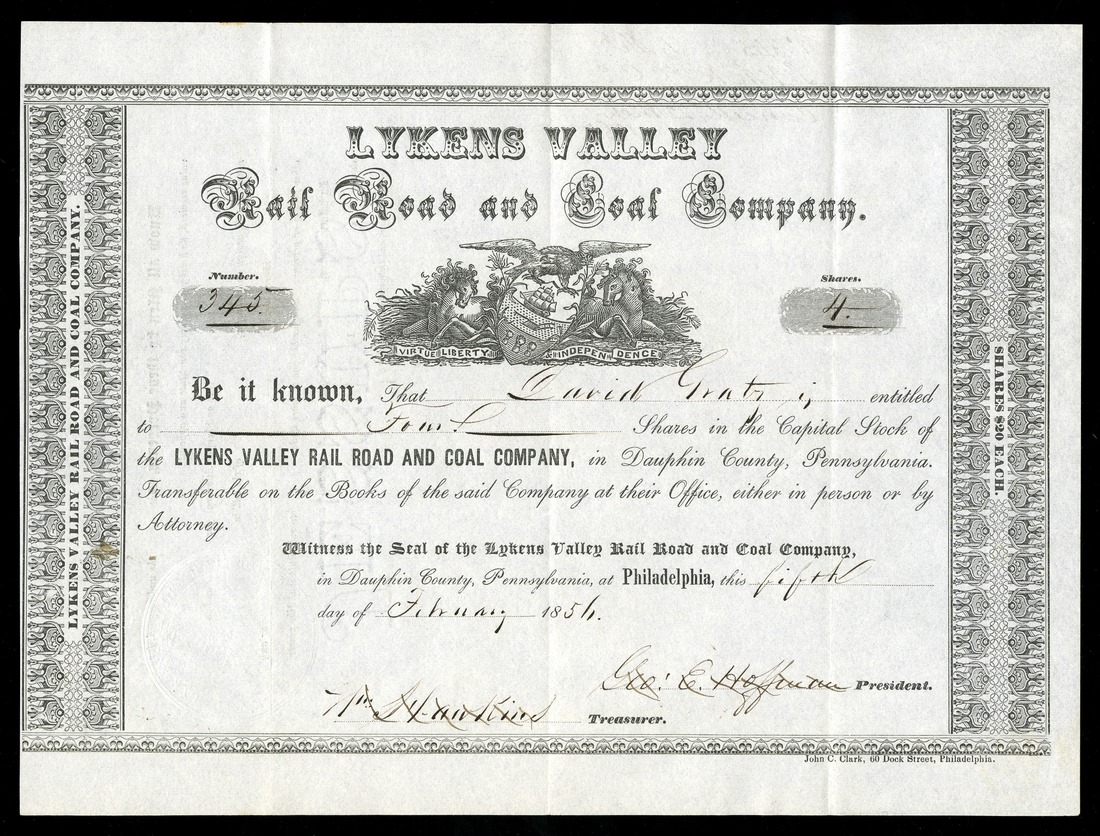 LYKENS VALLEY
Rail Road and Coal Company.
Number.
345.
Shares.
4.
VIRTUE LIBERTY & INDEPENDENCE
Be it known, That David Gratz is entitled
to Four Shares in the Capital Stock of
the LYKENS VALLEY RAIL ROAD AND COAL COMPANY, in Dauphin County, Pennsylvania.
Transferable on the Books of the said Company at their Office, either in person or by
Attorney.
Witness the Seal of the Lykens Valley Rail Road and Coal Company,
in Dauphin County, Pennsylvania, at Philadelphia, this fifth
day of February 1856.
Geo: E. Hoffman President.
Wm Hawkins Treasurer.
LYKENS VALLEY RAIL ROAD AND COAL COMPANY.
SHARES $20 EACH.
John C. Clark, 60 Dock Street, Philadelphia.